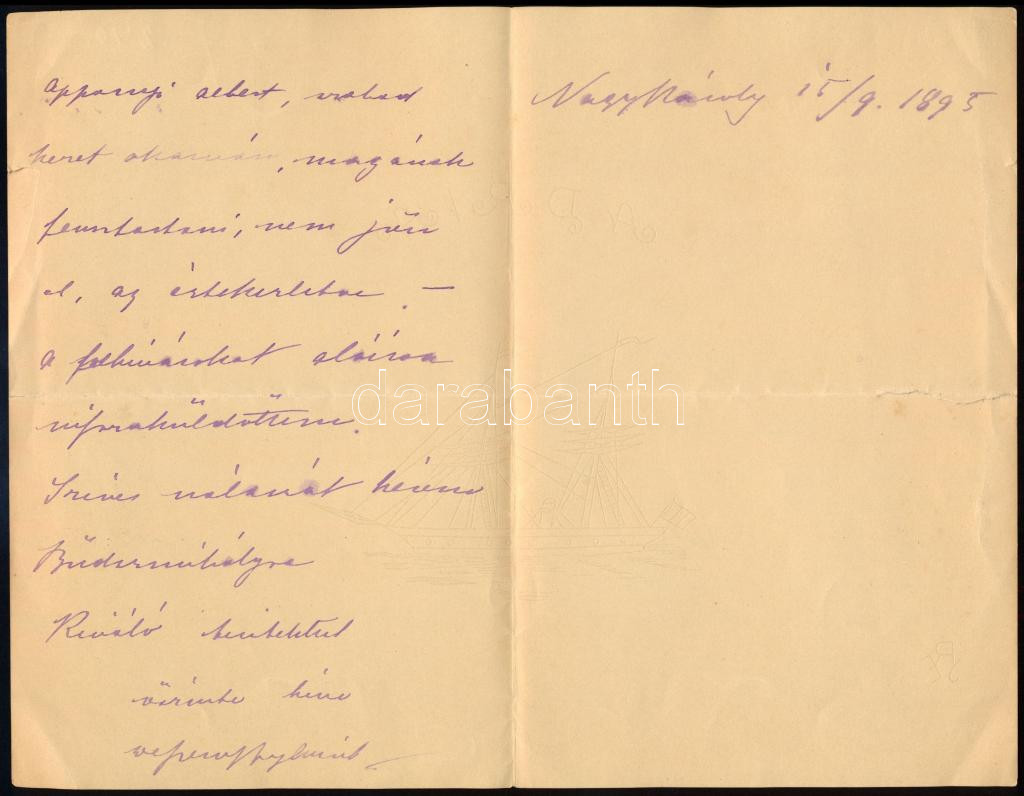 Apponyi Albert, szabad
kezet akarván, magának
fenntartani, nem jön
el, az értekezletre. —
a felhívásokat aláírva
visszaküldöttem.
Szíves válaszát kérem
Büdszentmihályra
Kiváló tisztelettel
őszinte híve
Nagykároly 15/9. 1895
darabanth